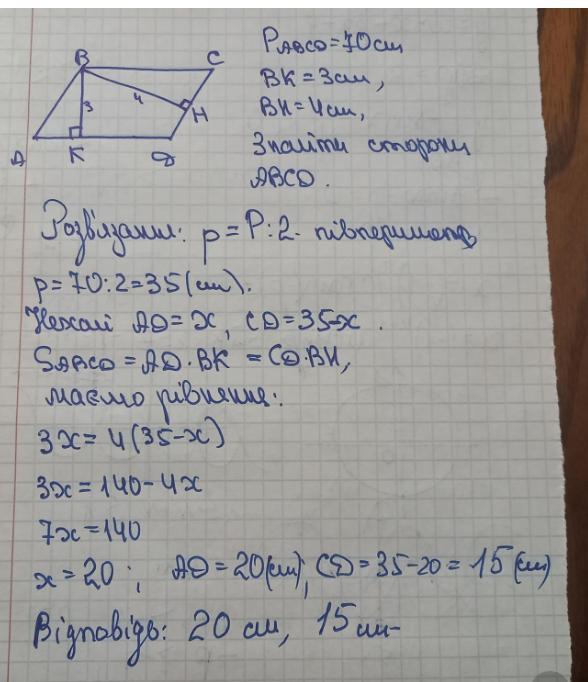 B C
3 4
H
A K D
P ABCD = 70 см
BK = 3 см,
BH = 4 см,
Знайти сторони
ABCD.
Розв'язання: p = P : 2 - півпериметр
p = 70 : 2 = 35 (см).
Нехай AD = x, CD = 35-x.
S ABCD = AD · BK = CD · BH,
маємо рівняння:
3x = 4(35-x)
3x = 140 - 4x
7x = 140
x = 20; AD = 20 (см), CD = 35-20 = 15 (см)
Відповідь: 20 см, 15 см